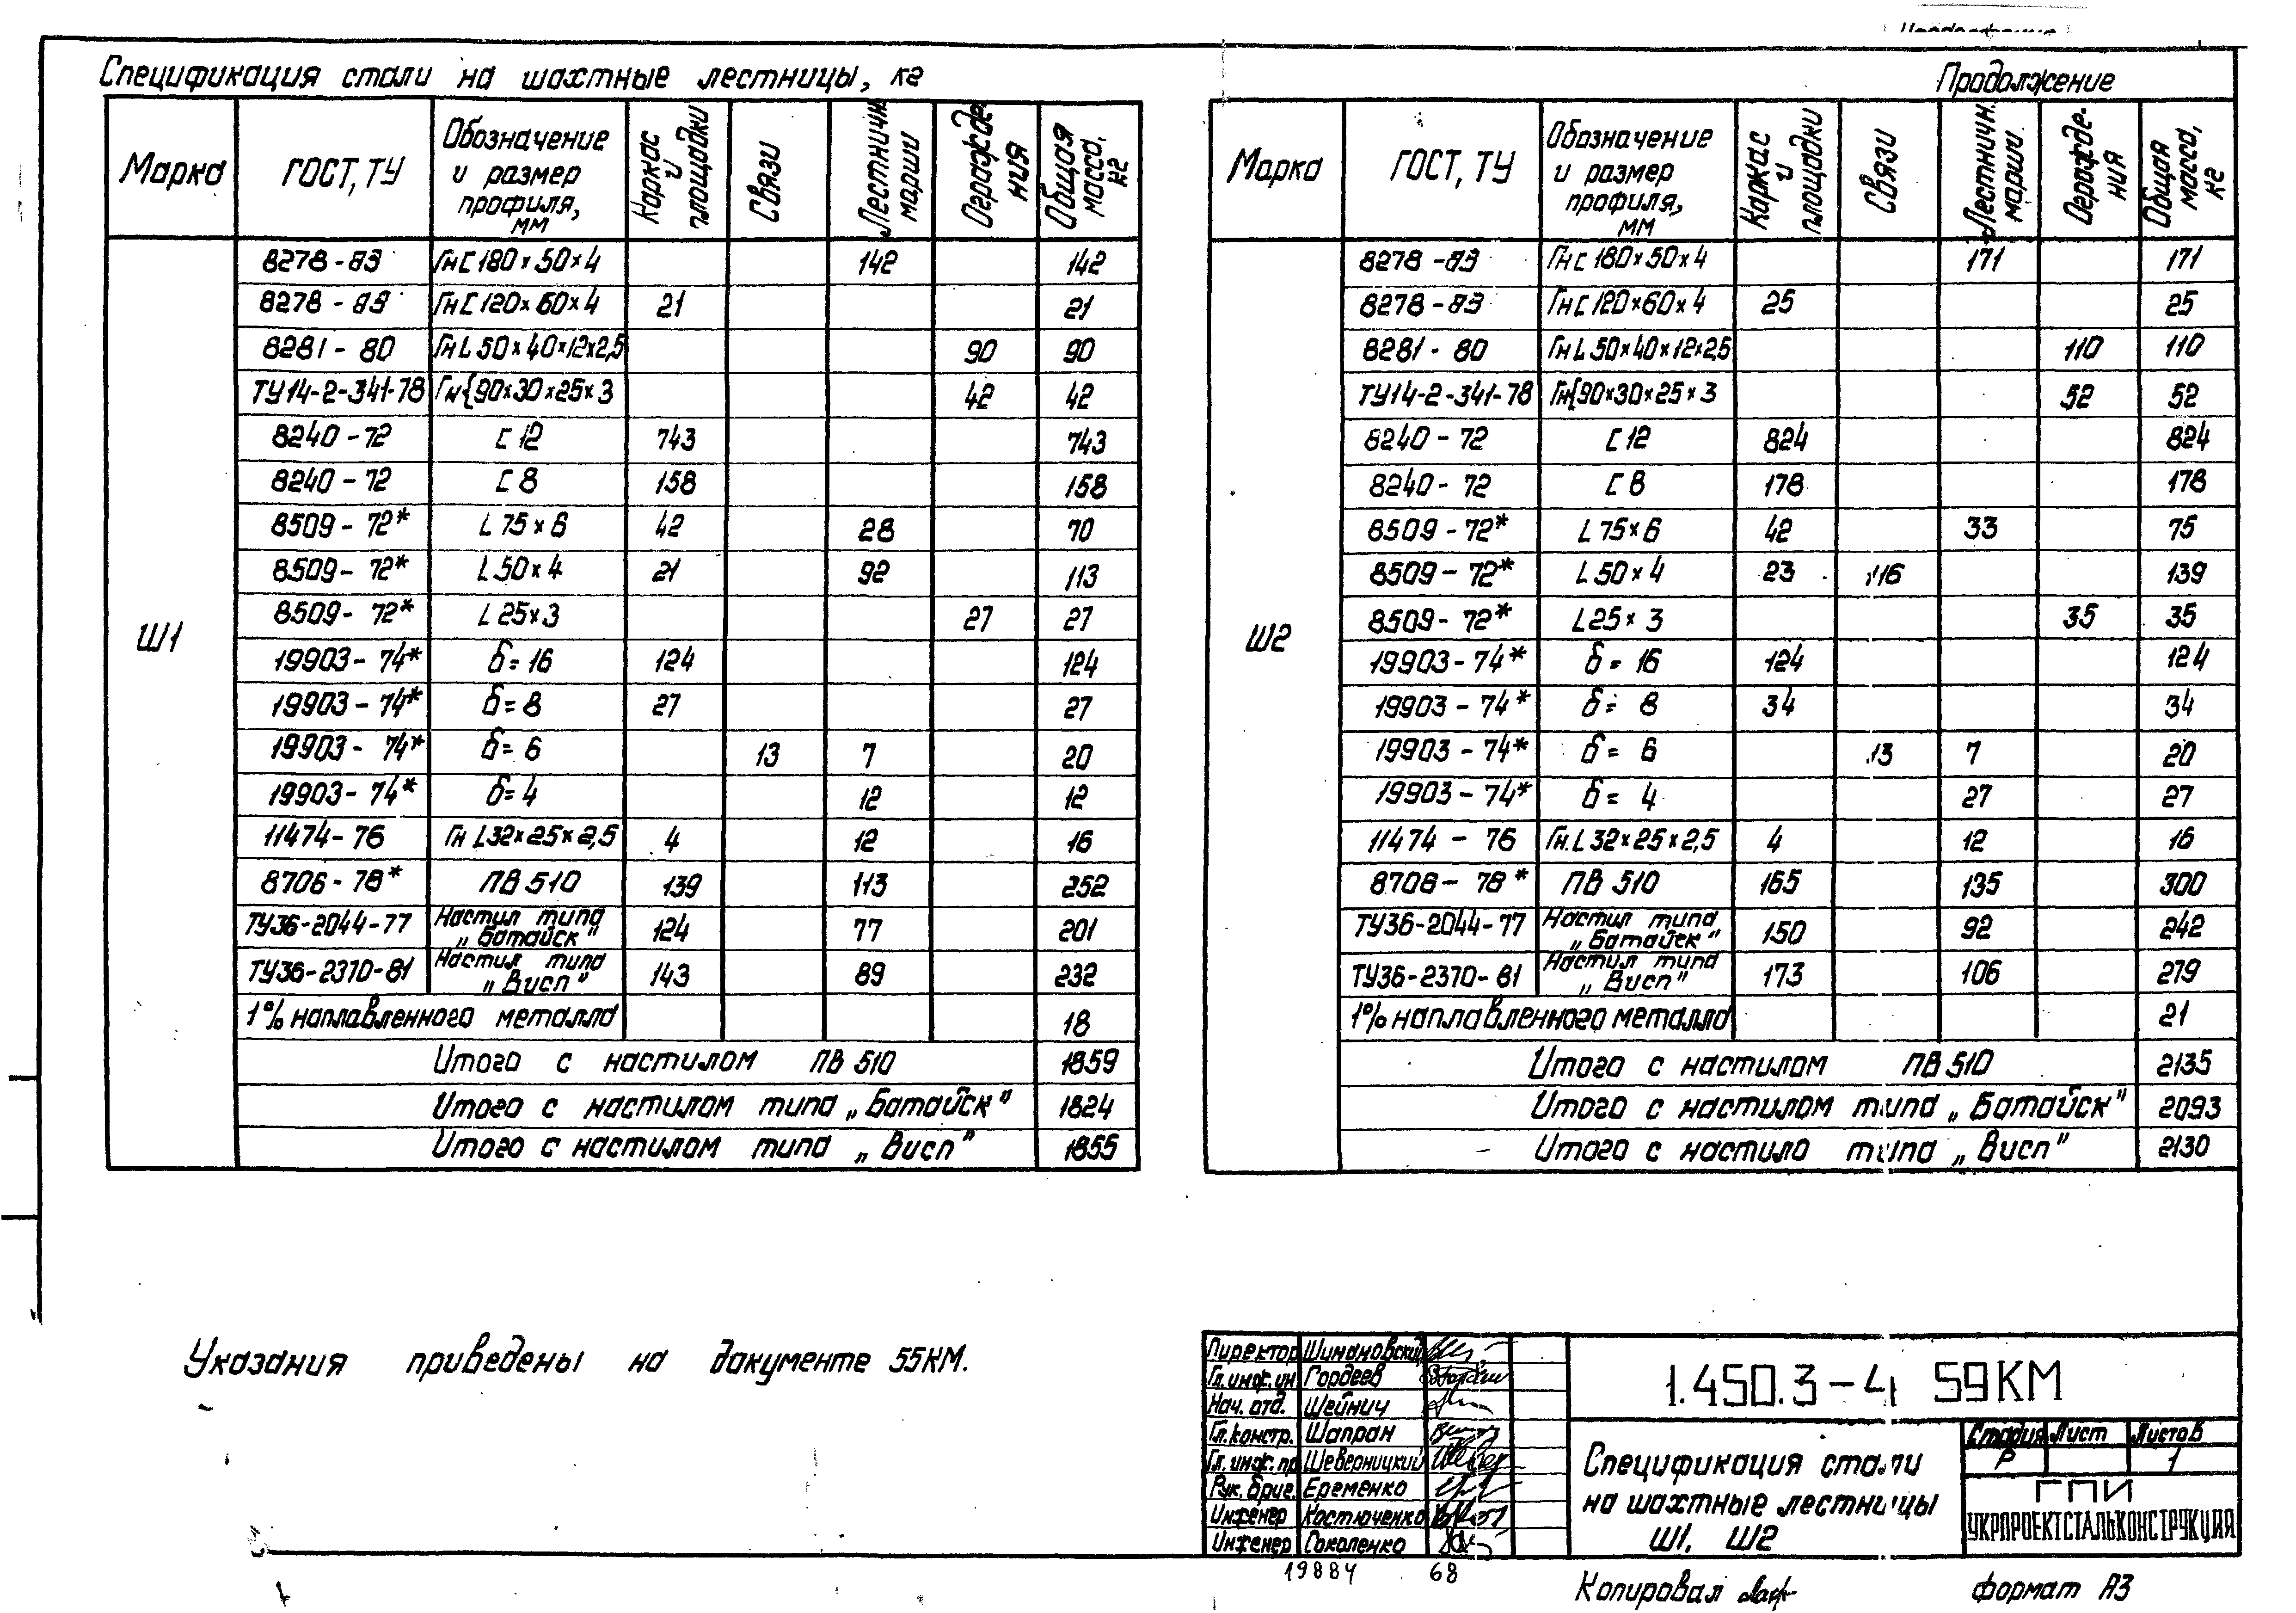 Спецификация стали на шахтные лестницы, кг
Марка ГОСТ, ТУ Обозначение и размер профиля, мм Каркас и площадки Связи Лестничн. марши Огражде- ния Общая масса, кг
Ш1
8278-83 Гн[180×50×4 142 142
8278-83 Гн[120×60×4 21 21
8281-80 ГнL50×40×12×2,5 90 90
ТУ14-2-341-78 Гн{90×30×25×3 42 42
8240-72 [12 743 743
8240-72 [8 158 158
8509-72* L75×6 42 28 70
8509-72* L50×4 21 92 113
8509-72* L25×3 27 27
19903-74* δ=16 124 124
19903-74* δ=8 27 27
19903-74* δ=6 13 7 20
19903-74* δ=4 12 12
11474-76 Гн L32×25×2,5 4 12 16
8706-78* ПВ 510 139 113 252
ТУ36-2044-77 Настил типа „Батайск" 124 77 201
ТУ36-2370-81 Настил типа „Висп" 143 89 232
1% наплавленного металла 18
Итого с настилом ПВ 510 1859
Итого с настилом типа „Батайск" 1824
Итого с настилом типа „Висп" 1855
Продолжение
Марка ГОСТ, ТУ Обозначение и размер профиля, мм Каркас и площадки Связи Лестничн. марши. Огражде- ния Общая масса, кг
Ш2
8278-83 Гн[180×50×4 171 171
8278-83 Гн[120×60×4 25 25
8281-80 ГнL50×40×12×2,5 110 110
ТУ14-2-341-78 Гн{90×30×25×3 52 52
8240-72 [12 824 824
8240-72 [8 178 178
8509-72* L75×6 42 33 75
8509-72* L50×4 23 116 139
8509-72* L25×3 35 35
19903-74* δ=16 124 124
19903-74* δ=8 34 34
19903-74* δ=6 13 7 20
19903-74* δ=4 27 27
11474-76 Гн.L32×25×2,5 4 12 16
8706-78* ПВ 510 165 135 300
ТУ36-2044-77 Настил типа „Батайск" 150 92 242
ТУ36-2370-81 Настил типа „Висп" 173 106 279
1% наплавленного металла 21
Итого с настилом ПВ 510 2135
Итого с настилом типа „Батайск" 2093
Итого с настило типа „Висп" 2130
Указания приведены на документе 55КМ.
Директор Шимановский
Гл. инж. ин Гордеев
Нач. отд. Шейнич
Гл. констр. Шапран
Гл. инж. пр Шеверницкий
Рук. бриг. Еременко
Инженер Костюченко
Инженер Соколенко
1.450.3-4 59КМ
Спецификация стали
на шахтные лестницы
Ш1, Ш2
Стадия Лист Листов
Р 1
ГПИ
УКРПРОЕКТСТАЛЬКОНСТРУКЦИЯ
19884 68
Копировал формат А3